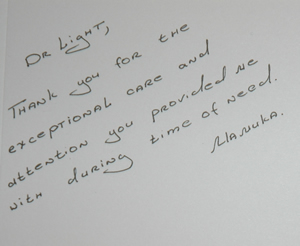 Dr Light,
Thank you for the
exceptional care and
attention you provided me
with during time of need.
Manuka.